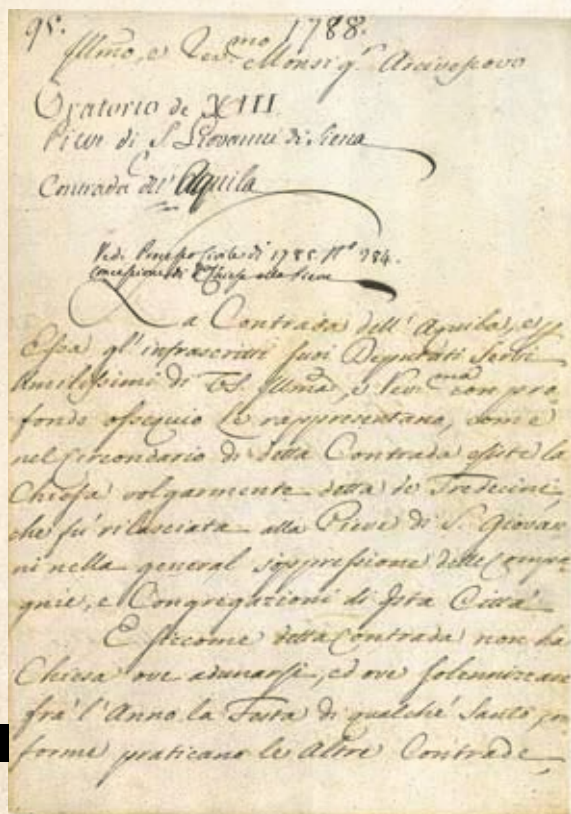 95. 1788.
Illmo, e Revmo Monsigr. Arcivescovo
Oratorio de XIII
Pieve di S. Giovanni di Siena
e
Contrada dell' Aquila
Vedi Processo Civile di 1785. No. 984.
concessione di da Chiesa alla Pieve
La Contrada dell' Aquila, e p
Essa gl' infrascritti suoi Deputati Servi
umilissimi di VS. Illma, e Revma con pro
fondo ossequio Le rappresentano, come
nel Circondario di detta Contrada esiste la
Chiesa volgarmente detta de Tredicini,
che fu' rilasciata alla Pieve di S. Giovan
ni nella general soppressione delle Compa
gnie, e Congregazioni di qsta Città
E siccome detta Contrada non ha
Chiesa ove adunarsi, ed ove solennizzare
fra' l' Anno la Festa di qualche' Santo, con
forme praticano le Altre Contrade